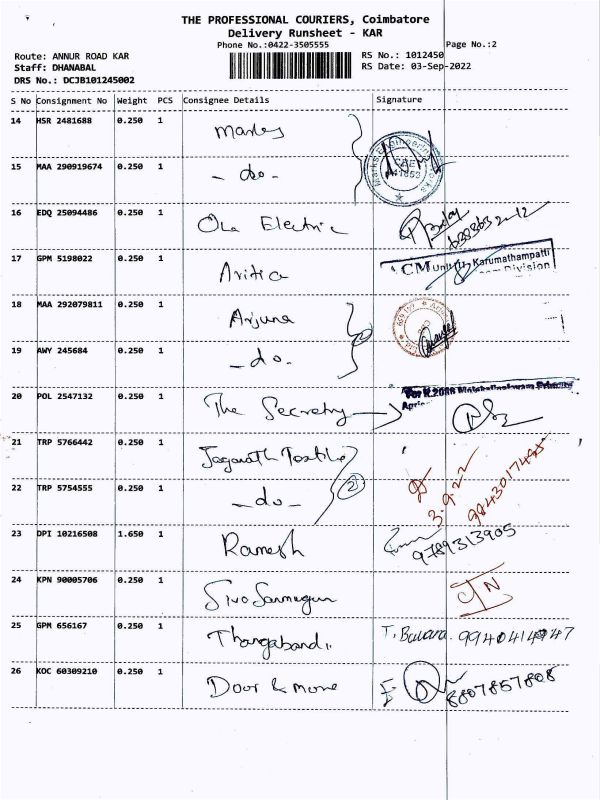 THE PROFESSIONAL COURIERS, Coimbatore
Delivery Runsheet - KAR
Phone No.:0422-3505555
Page No.:2
Route: ANNUR ROAD KAR
RS No.: 1012450
Staff: DHANABAL
RS Date: 03-Sep-2022
DRS No.: DCJB101245002
S No Consignment No Weight PCS Consignee Details Signature
14 HSR 2481688 0.250 1 Marks
15 MAA 290919674 0.250 1 - do -
16 EDQ 25094486 0.250 1 Ola Electric
17 GPM 5198022 0.250 1 CM Unit Karumathampatti
Division
18 MAA 292079811 0.250 1 Arjuna
19 AWY 245684 0.250 1 - do -
20 POL 2547132 0.250 1 The Secretry
21 TRP 5766442 0.250 1 Jaganath
22 TRP 5754555 0.250 1 - do - 2 3.9.22
23 DPI 10216508 1.650 1 Ramesh 9789313905
24 KPN 90005706 0.250 1
25 GPM 656167 0.250 1 T. Bavara
26 KOC 60309210 0.250 1 Door & more 8807857808